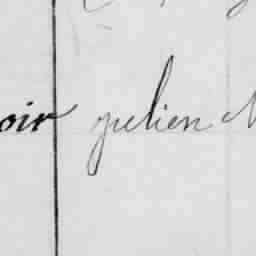 oir Julien